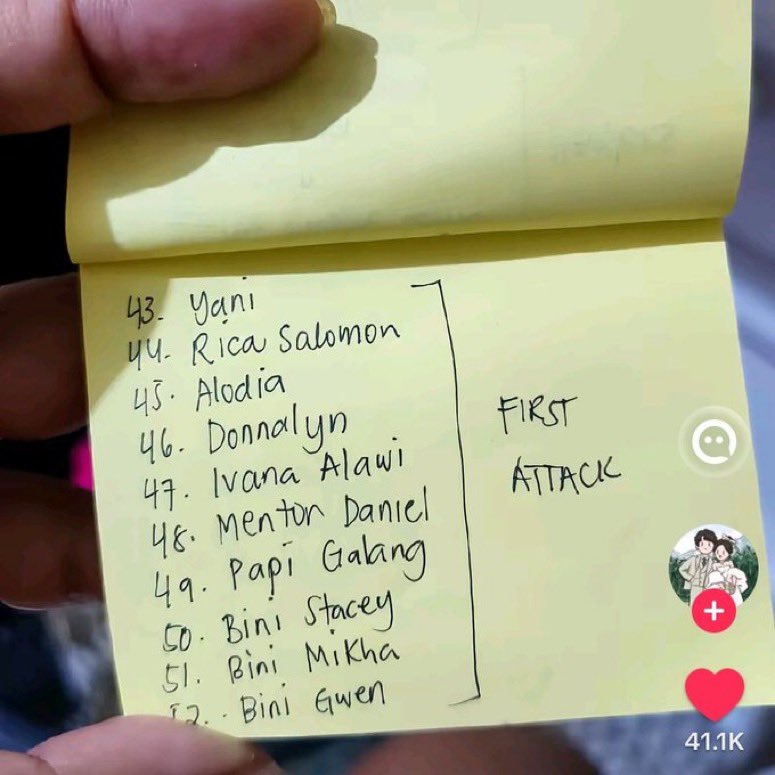 43. Yani
44. Rica Salomon
45. Alodia
46. Donnalyn
47. Ivana Alawi
48. Mentor Daniel
49. Papi Galang
50. Bini Stacey
51. Bini Mikha
52. Bini Gwen
FIRST
ATTACK
41.1K